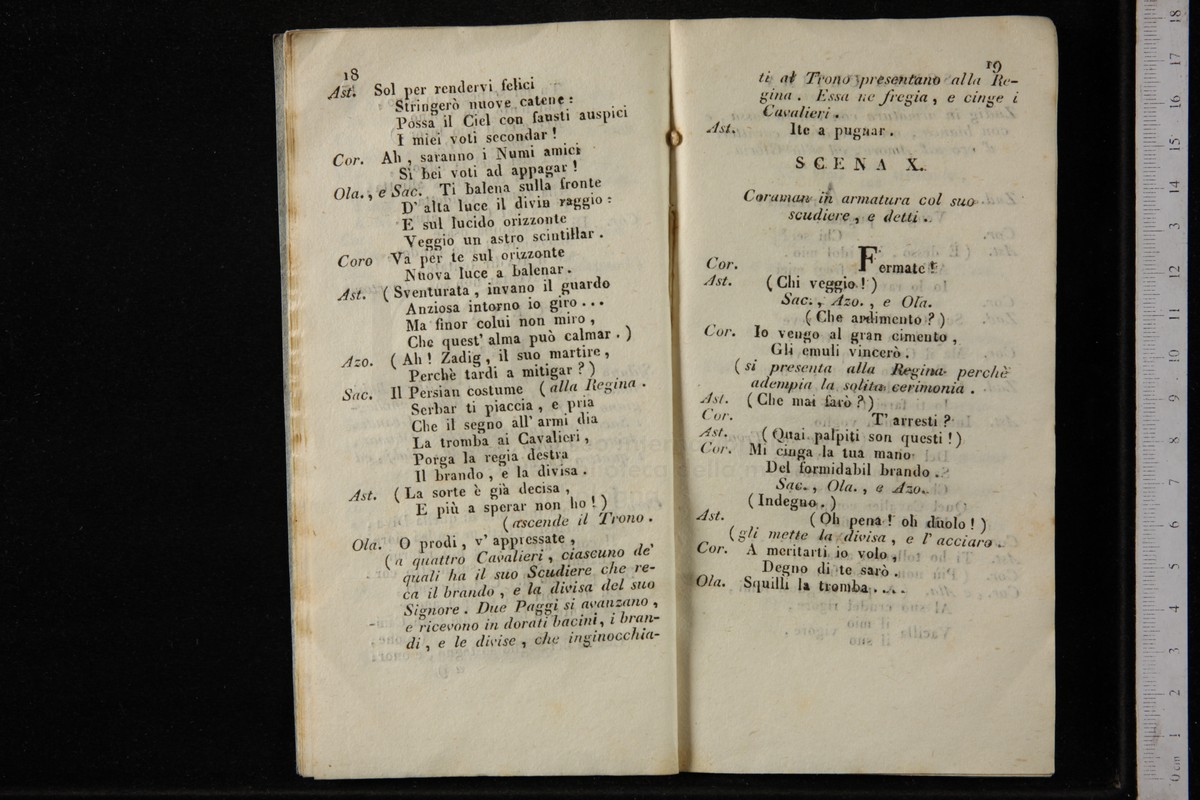 18
Ast. Sol per rendervi felici
Stringerò nuove catene :
Possa il Ciel con fausti auspici
I miei voti secondar !
Cor. Ah , saranno i Numi amici
Sì bei voti ad appagar !
Ola. , e Sac. Ti balena sulla fronte
D' alta luce il divin raggio :
E sul lucido orizzonte
Veggio un astro scintillar .
Coro Va per te sul orizzonte
Nuova luce a balenar .
Ast. ( Sventurata , invano il guardo
Anziosa intorno io giro ...
Ma finor colui non miro ,
Che quest' alma può calmar . )
Azo. ( Ah ! Zadig , il suo martire ,
Perchè tardi a mitigar ? )
Sac. Il Persian costume ( alla Regina .
Serbar ti piaccia , e pria
Che il segno all' armi dia
La tromba ai Cavalieri ,
Porga la regia destra
Il brando , e la divisa .
Ast. ( La sorte è già decisa ,
E più a sperar non ho ! )
( ascende il Trono .
Ola. O prodi , v' appressate ,
( a quattro Cavalieri , ciascuno de'
quali ha il suo Scudiere che re-
ca il brando , e la divisa del suo
Signore . Due Paggi si avanzano ,
e ricevono in dorati bacini , i bran-
di , e le divise , che inginocchia-
19
ti al Trono presentano alla Re-
gina . Essa ne fregia , e cinge i
Cavalieri .
Ast. Ite a pugnar .
SCENA X.
Coraman in armatura col suo
scudiere , e detti .
Cor. Fermate !
Ast. ( Chi veggio ! )
Sac. , Azo. , e Ola.
( Che ardimento ? )
Cor. Io vengo al gran cimento ,
Gli emuli vincerò .
( si presenta alla Regina perchè
adempia la solita cerimonia .
Ast. ( Che mai farò ? )
Cor. T' arresti ?
Ast. ( Quai palpiti son questi ! )
Cor. Mi cinga la tua mano
Del formidabil brando .
Sac. , Ola. , e Azo.
( Indegno . )
Ast. ( Oh pena ! oh duolo ! )
( gli mette la divisa , e l' acciaro .
Cor. A meritarti io volo ,
Degno di te sarò .
Ola. Squilli la tromba ....